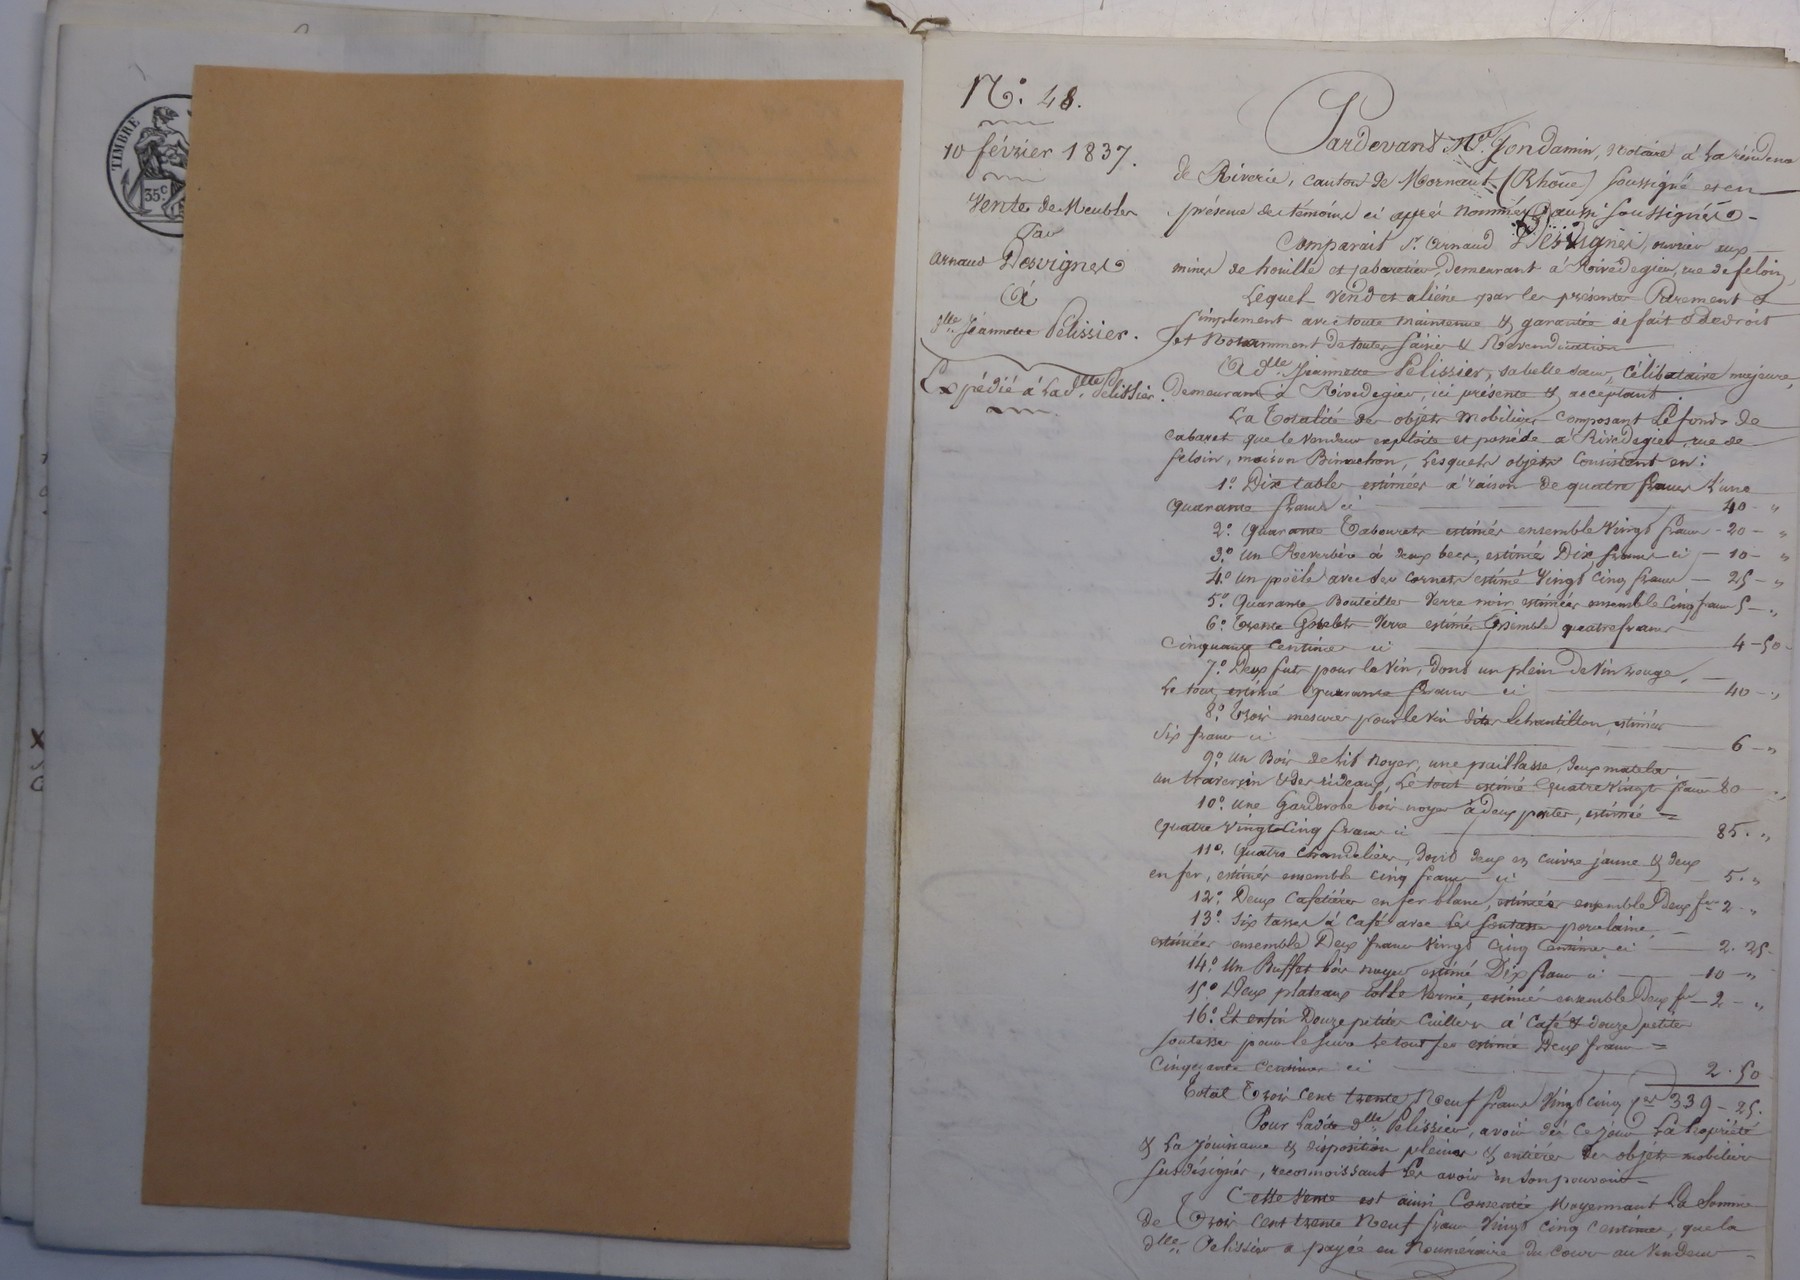 TIMBRE
35c
N.o 48.
10 février 1837.
Vente de Meubles
Par
Arnaud Desvignes
à
Dlle Jeannette Pelissier.
Expédié à lad. dlle Pelissier.
Pardevant Me Jondamin, Notaire à la résidence
de Riverie, canton de Mornant (Rhône) soussigné et en
présence de témoins ci après nommés & aussi soussignés
Comparait Sr. Arnaud Desvignes, ouvrier aux
mines de houille et cabaretier, demeurant à Rivedegier, rue de feloin,
Lequel vend et aliène par les présentes Purement &
simplement avec toute maintenue & garantie de fait & de droit
et Notamment de toutes saisies & Revendication
A dlle Jeannette Pelissier, sa belle soeur, célibataire majeure,
demeurant à Rivedegier, ici présente & acceptant.
La Totalité des objets mobiliers composant le fonds de
cabaret que le vendeur exploite et possède à Rivedegier, rue de
feloin, maison Bimachon, lesquels objets consistent en:
1.o Dix tables estimées à raison de quatre francs l'une
quarante francs ci 40 - "
2.o quarante Tabourets estimés ensemble vingt francs - 20 - "
3.o un Reverbère à deux becs, estimé Dix francs ci - 10 - "
4.o un poële avec ses cornets estimé vingt cinq francs - 25 - "
5.o quarante Bouteilles verre noir estimées ensemble cinq francs 5 - "
6.o Trente Gobelets verre estimés Ensemble quatre francs
cinquante centimes ci 4 - 50 -
7.o Deux futs pour le vin, dont un plein de vin rouge,
le tout estimé quarante francs ci 40 - "
8.o Trois mesures pour le vin dites Echantillon, estimées
six francs ci 6 - "
9.o un Bois de lit noyer, une paillasse, deux matelas
un traversin & des rideaux, le tout estimé quatre vingts francs 80 - "
10.o une Garderobe bois noyer à deux portes, estimée =
quatre vingt cinq francs ci 85. "
11.o quatre chandeliers, dont deux en cuivre jaune & deux
en fer, estimés ensemble cinq francs ci 5. "
12.o Deux Cafetières en fer blanc, estimées ensemble Deux fr. 2 - "
13.o six tasses à café avec les soutasses porcelaine,
estimées ensemble Deux francs vingt cinq centimes ci 2. 25 -
14.o un Buffet bois noyer estimé Dix francs ci - 10 - "
15.o Deux plateaux tolle vernie, estimés ensemble Deux fr - 2 - "
16.o Et enfin Douze petites cuillers à café & douze petites
soutasses pour le sucre le tout fer estimé Deux francs =
cinquante centimes ci 2. 50
Total Trois cent trente Neuf francs Vingt cinq ces 339 - 25.
Pour ladite dlle Pelissier, avoir dès ce jour la Propriété
& la jouissance & disposition pleines & entières des objets mobiliers
susdésignés, reconnoissant les avoir en son pouvoir -
Cette vente est ainsi Consentie Moyennant la Somme
de Trois cent trente Neuf francs vingt cinq centimes, que la
dlle Pelissier a payée en Nouméraire du cours au vendeur =